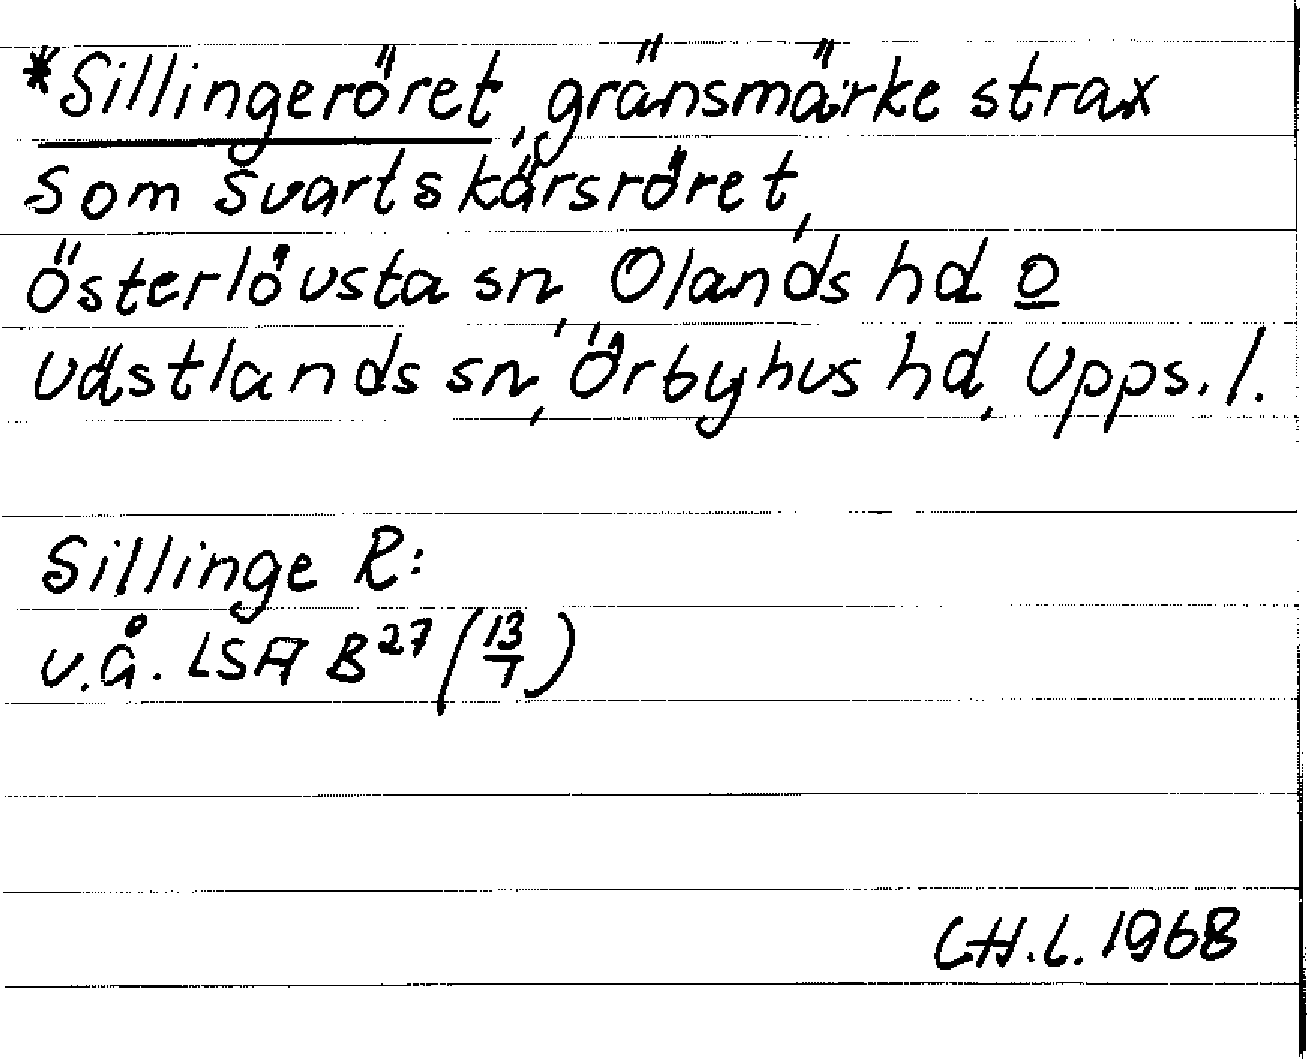 *Sillingeröret, gränsmärke strax
som Svartskärsröret,
Österlövsta sn, Olands hd o
Västlands sn, Örbyhus hd, Upps. l.
Sillinge R:
u.å. LSA B 27 (13/7)
CH.L. 1968